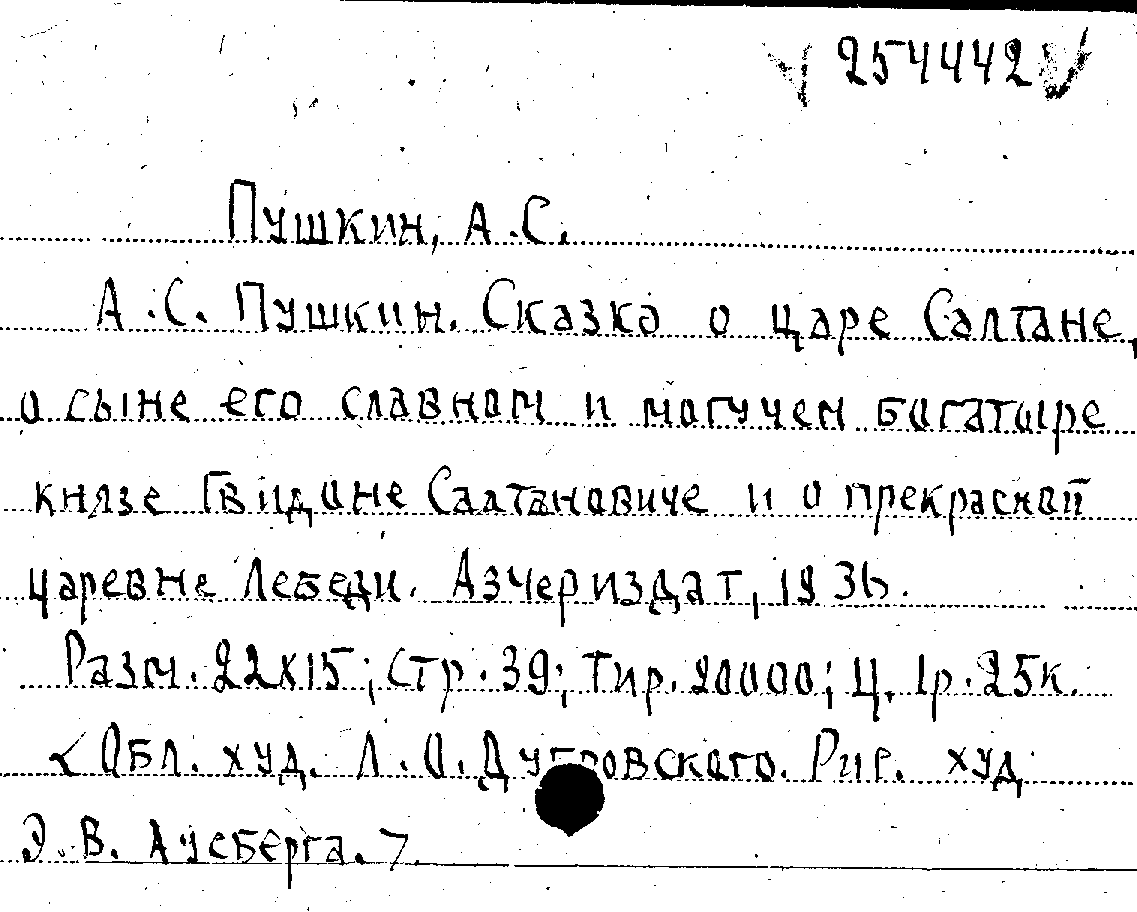 254442
Пушкин, А.С.
А.С. Пушкин. Сказка о царе Салтане,
о сыне его славном и могучем богатыре
князе Гвидоне Салтановиче и о прекраской
царевне Лебеди. Азчериздат, 1936.
Разм. 22х15; Стр. 39; Тир. 20000; Ц. 1р. 25к.
<Обл. худ. Л.О. Дубровского. Рис. худ.
Э.В. Аусберга.>